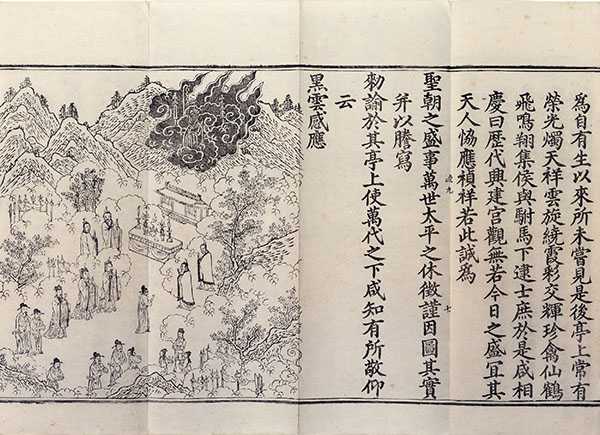 爲自有生以來所未嘗見是後亭上常有
榮光燭天祥雲旋繞霞彩交輝珍禽仙鶴
飛鳴翔集侯與駙馬下逮士庶於是咸相
慶曰歷代興建宮觀無若今日之盛宜其
天人恊應禎祥若此誠爲
聖朝之盛事萬世太平之休徵謹因圖其實
并以謄寫
勑諭於其亭上使萬代之下咸知有所敬仰
云
黑雲感應
七